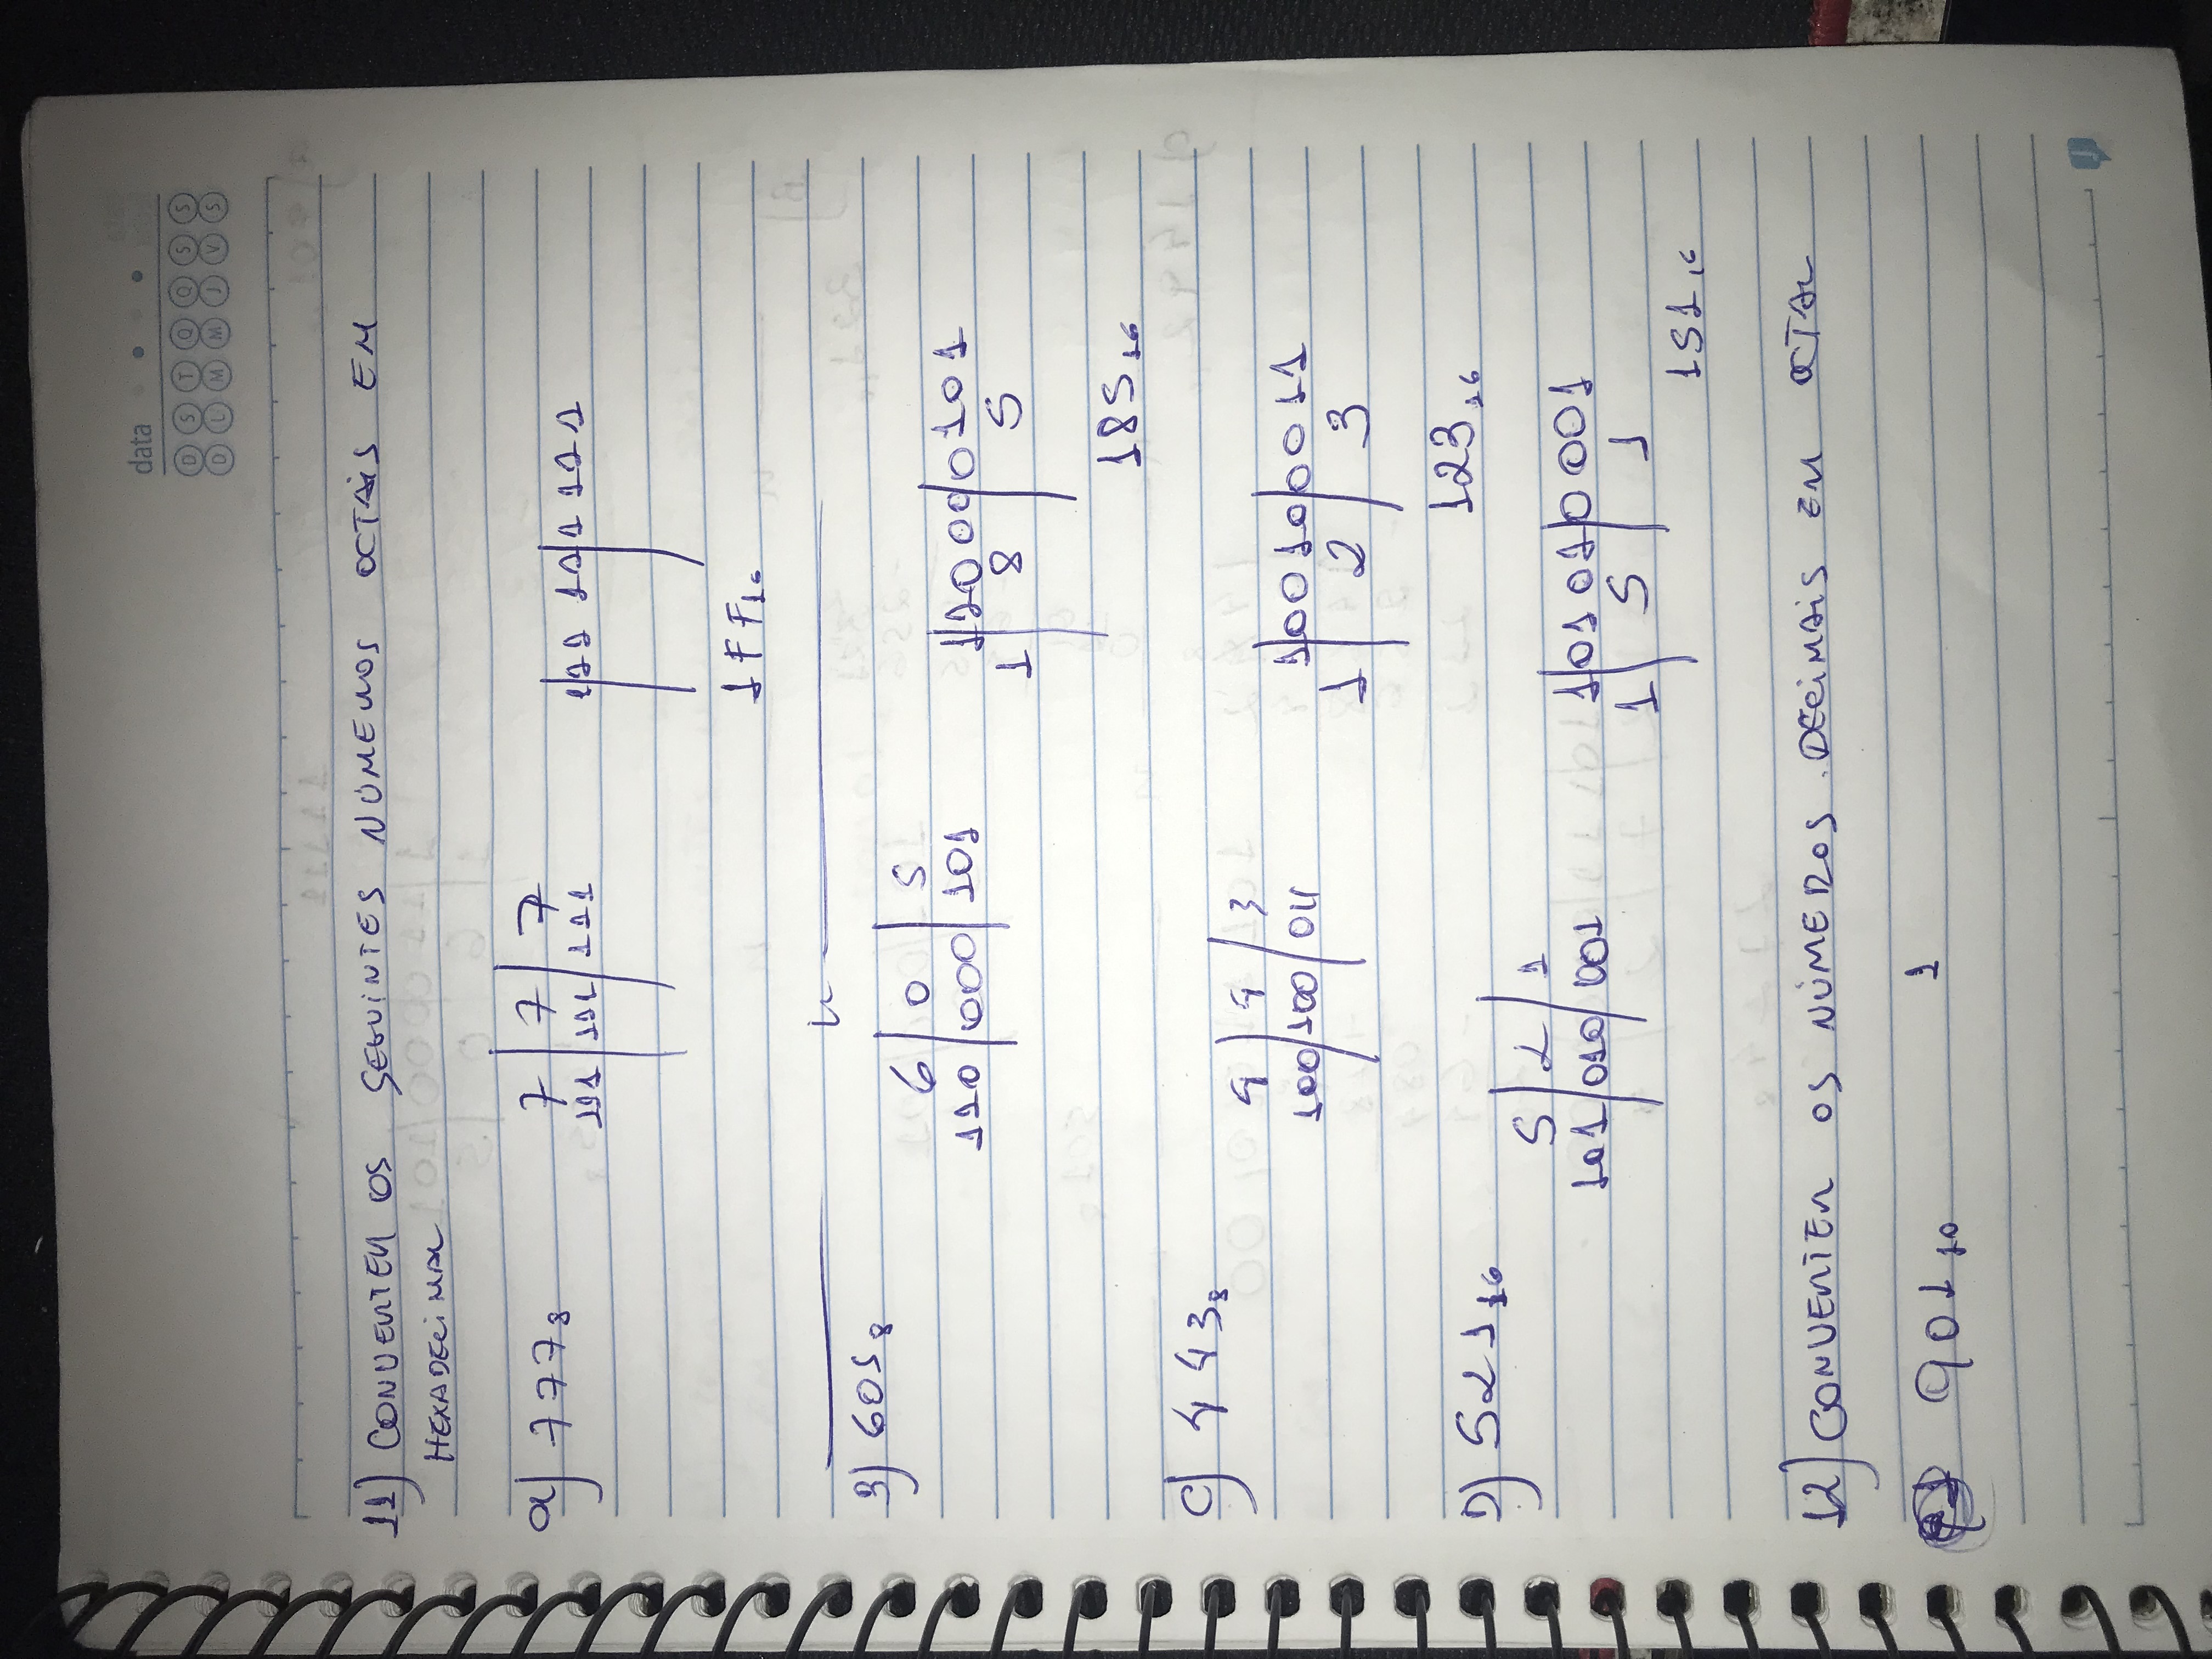 data
D S T Q Q S S
D L M M J V S
11) CONVERTER OS SEGUINTES NÚMEROS OCTAIS EM
HEXADECIMAL
a) 777₈
7 | 7 | 7
111 | 111 | 111
1|11 11|1 111
1FF₁₆
B) 605₈
6 | 0 | 5
110 | 000 | 101
1|1000|0101
1 | 8 | 5
185₁₆
C) 443₈
4 | 4 | 3
100 | 100 | 011
1|0010|0011
1 | 2 | 3
123₁₆
D) 521₁₆
5 | 2 | 1
101 | 010 | 001
1|0101|0001
1 | 5 | 1
151₁₆
12) CONVERTER OS NÚMEROS DECIMAIS EM OCTAL
901₁₀ 1